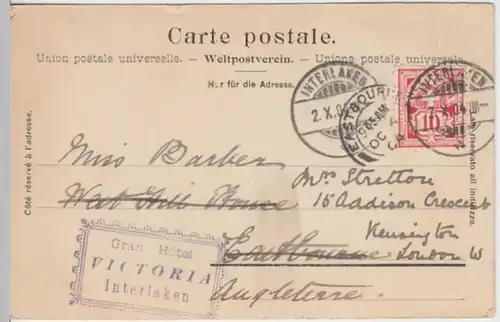 Carte postale.
Union postale universelle. – Weltpostverein. – Unione postale universale.
Nur für die Adresse.
Côté réservé à l'adresse.
Lato riservato all indirizzo.
INTERLAKEN
2.X.04
EASTBOURNE
OC 4
04
INTERLAKEN
X.04
10
Miss Barber
West Hill House
Eastbourne
Angleterre.
Mrs Stretton
15 Addison Crescent
Kensington
London W
Gran Hotel
VICTORIA
Interlaken